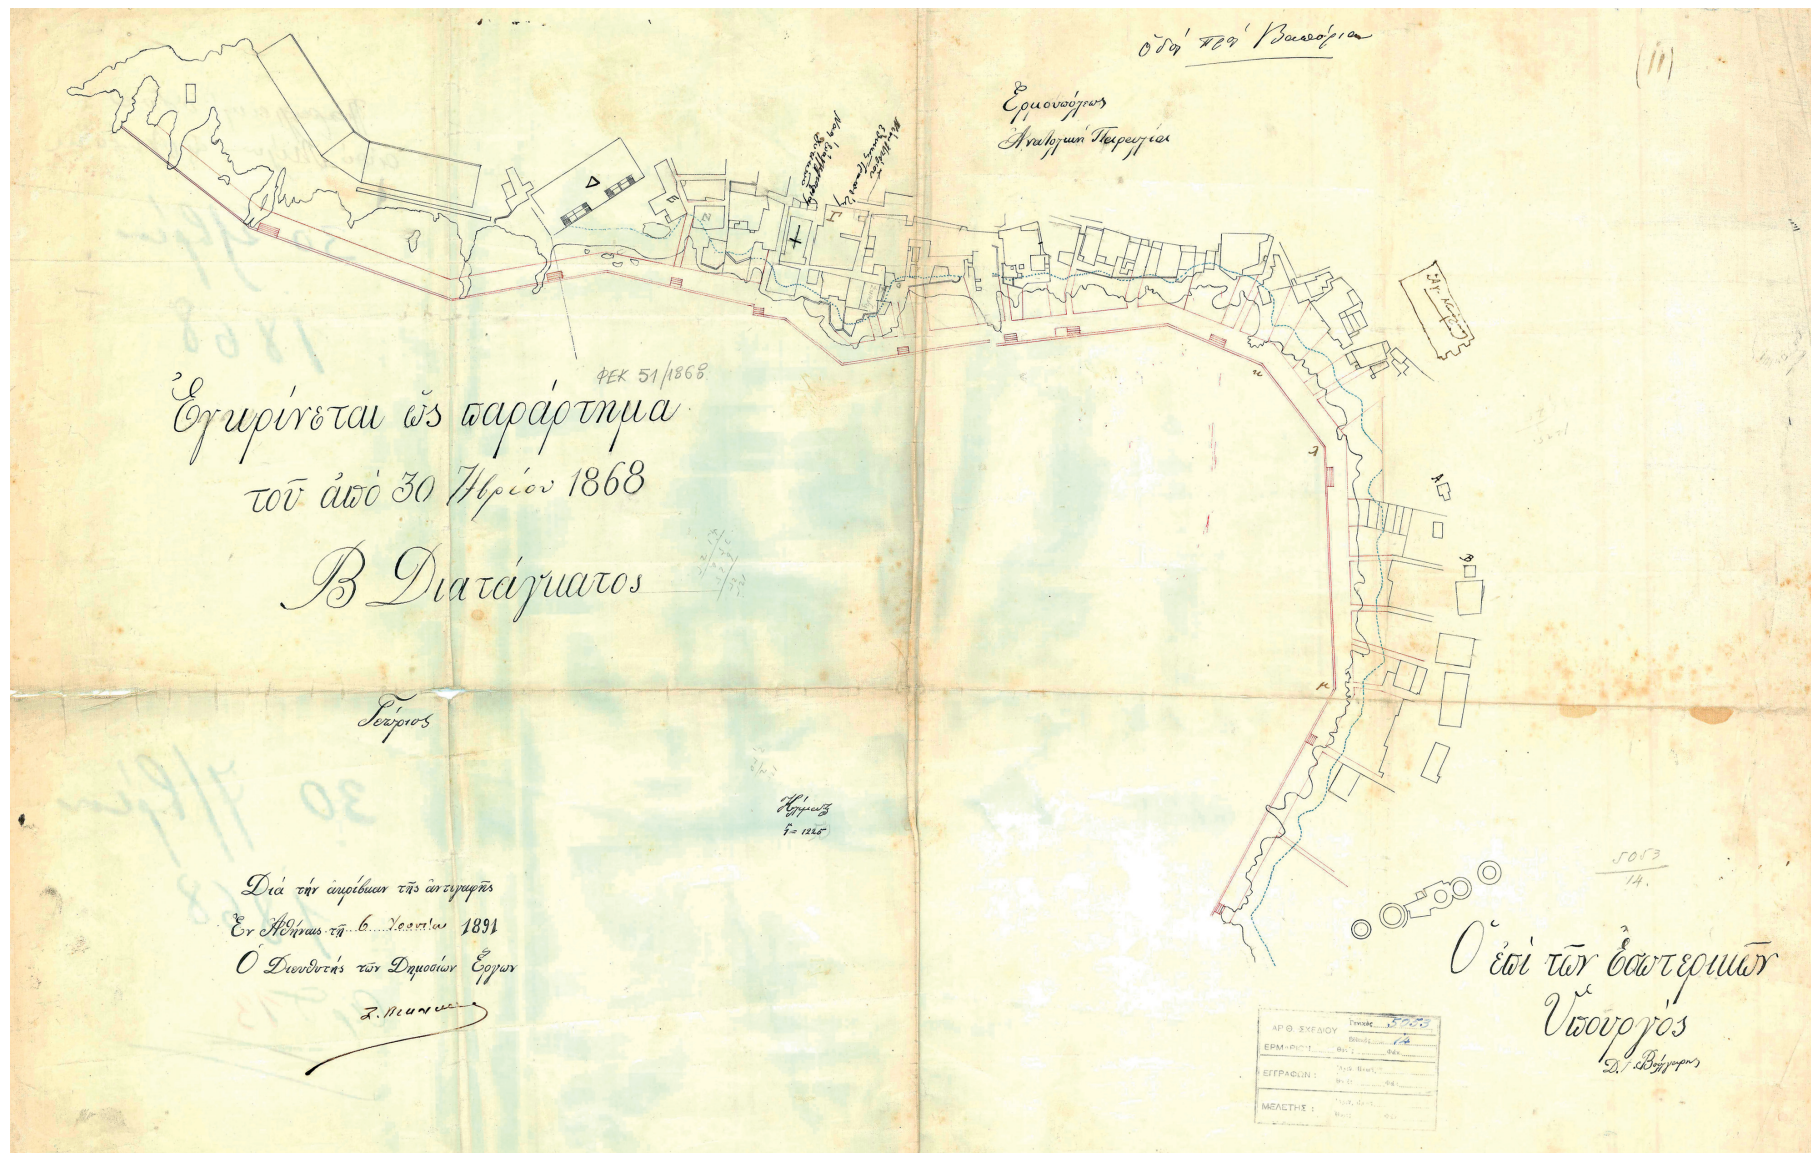 Ὁδὸς πρὸς Βαπόρια
(11)
Ἑρμουπόλεως
Ἀνατολικὴ Παραλία
Ἁγ. Νικόλαος
ΦΕΚ 51/1868
Ἐγκρίνεται ὡς παράρτημα
τοῦ ἀπὸ 30 7/βρίου 1868
Β Διατάγματος
Γεώργιος
Κλίμαξ
1225
κ
λ
μ
Α
Β
Διὰ τὴν ἀκρίβειαν τῆς ἀντιγραφῆς
Ἐν Ἀθήναις τῇ 6 Ἰουνίου 1891
Ὁ Διευθυντὴς τῶν Δημοσίων Ἔργων
5053
14.
Ὁ ἐπὶ τῶν Ἐσωτερικῶν
Ὑπουργός
Δ. Γ. Βούλγαρης
ΑΡΙΘ. ΣΧΕΔΙΟΥ Γενικός 5053
Ειδικός 14
ΕΡΜΑΡΙΟΥ
ΕΓΓΡΑΦΩΝ :
ΜΕΛΕΤΗΣ :